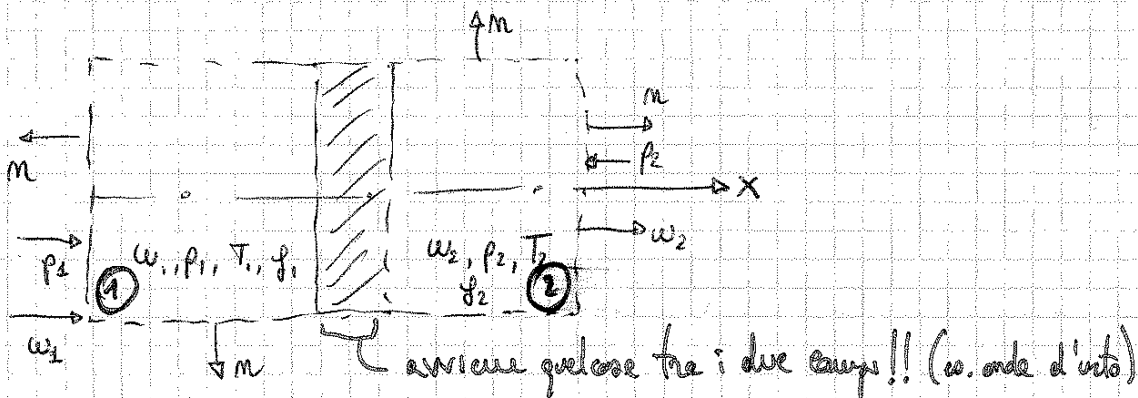 n
n
n
p₂
x
p₁
w₁, p₁, T₁, ρ₁
w₂, p₂, T₂
w₂
①
ρ₂
②
w₁
n
avviene qualcosa tra i due campi!! (es. onde d'urto)